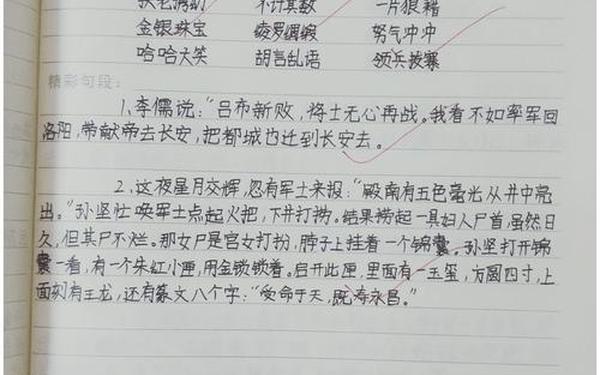 扶老携幼 不计其数 一片狼藉
金银珠宝 绫罗绸缎 努气冲冲
哈哈大笑 胡言乱语 领兵拔寨
精彩句段：
1、李儒说："吕布新败，将士无心再战。我看不如率军回
洛阳，带献帝去长安，把都城也迁到长安去。
2、这夜星月交辉，忽有军士来报："殿南有五色毫光从井中亮
出。"孙坚忙唤军士点起火把，下井打捞。结果捞起一具妇人尸首，虽然日
久，但其尸不烂。那女尸是宫女打扮，脖子上挂着一个锦囊。孙坚打开锦
囊一看，有一个朱红小匣，用金锁锁着。启开此匣，里面有一玉玺，方圆四寸，上
面刻有五龙，还有篆文八个字："受命于天，既寿永昌。"